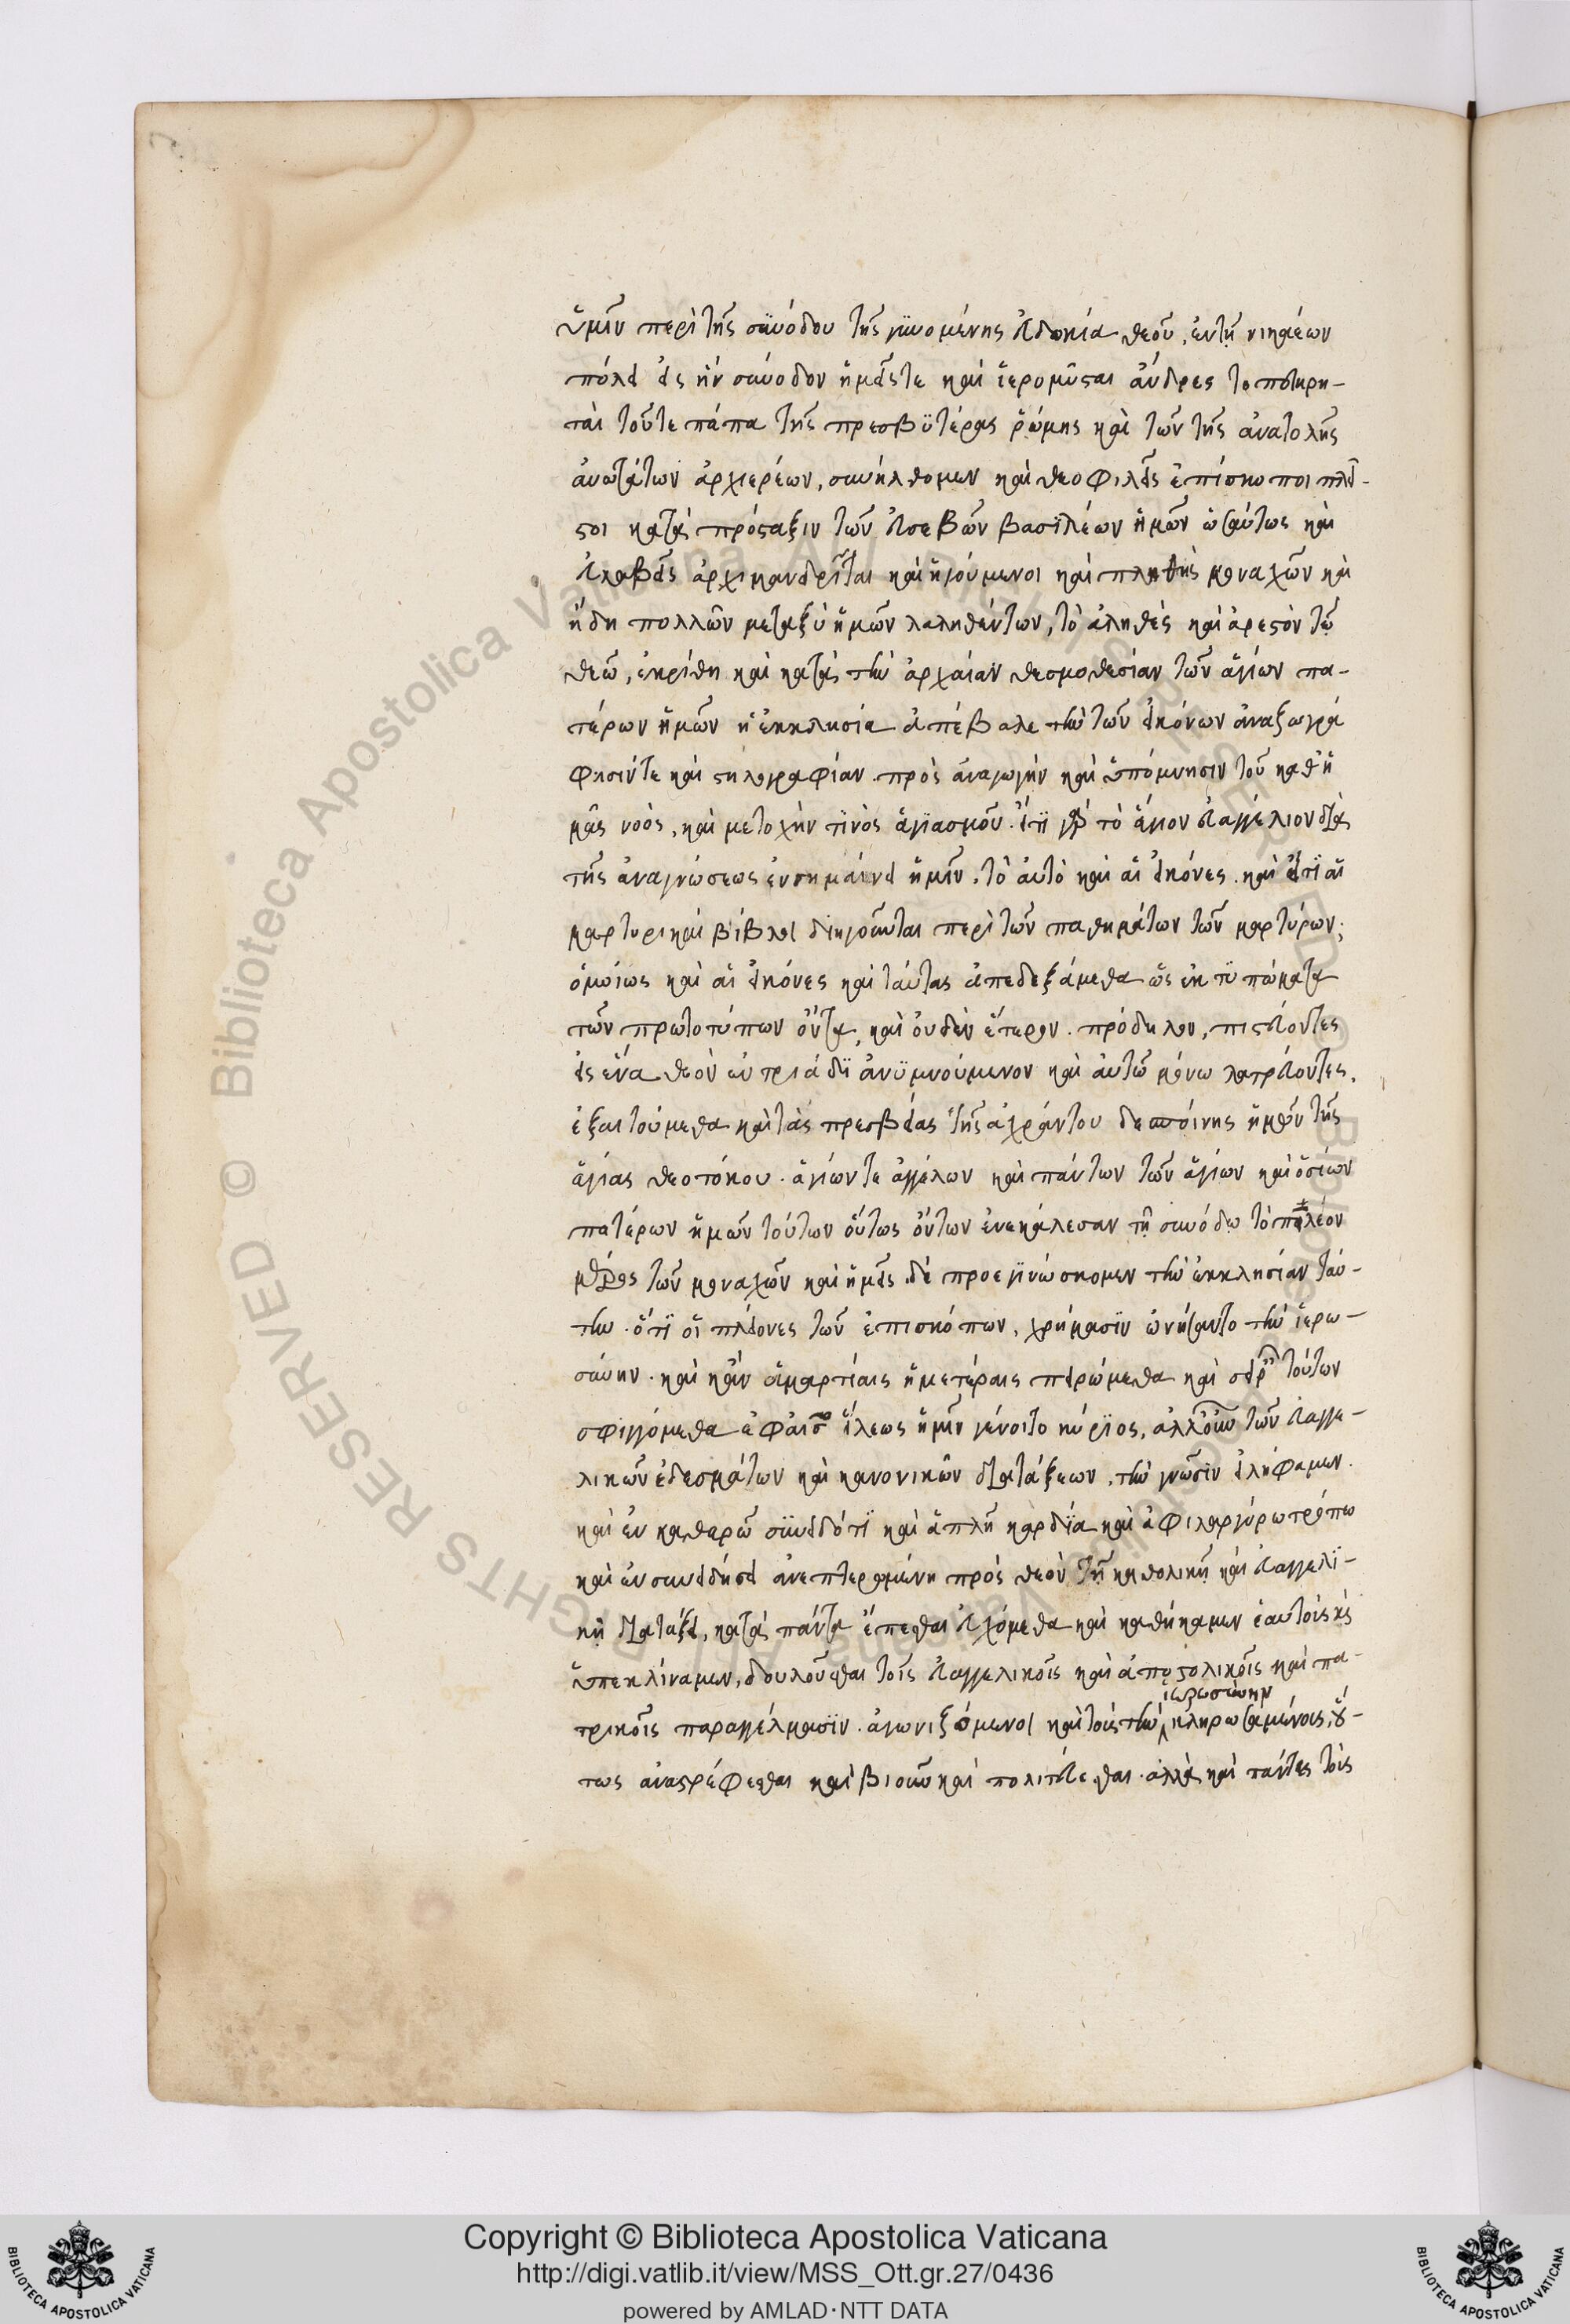 ὑμῖν περὶ τῆς συνόδου τῆς γινομένης εὐδοκία θεοῦ, ἐν τῇ νικαέων
πόλει εἰς ἣν σύνοδον ἡμεῖς τε καὶ ἱερομύσται ἄνδρες τοποτηρη-
ταὶ τοῦτε πάπα τῆς πρεσβυτέρας ῥώμης καὶ τῶν τῆς ἀνατολῆς
ἀνωτάτων ἀρχιερέων, συνήλθομεν καὶ θεοφιλεῖς ἐπίσκοποι πλεῖ-
στοι κατὰ πρόσταξιν τῶν εὐσεβῶν βασιλέων ἡμῶν ὡσαύτως καὶ
εὐλαβεῖς ἀρχιμανδρῖται καὶ ἡγούμενοι καὶ πληθὺς μοναχῶν καὶ
ἤδη πολλῶν μεταξὺ ἡμῶν λαληθέντων, τὸ ἀληθὲς καὶ ἀρεστὸν τῷ
θεῷ, ἐκρίθη καὶ κατὰ τὴν ἀρχαίαν θεσμοθεσίαν τῶν ἁγίων πα-
τέρων ἡμῶν ἡ ἐκκλησία ἀπέβαλε τὴν τῶν εἰκόνων ἀναζωγρά
φησίν τε καὶ στηλογραφίαν. πρὸς ἀναγωγὴν καὶ ὑπόμνησιν τοῦ καθ ἡ
μᾶς νοὸς, καὶ μετοχὴν τινὸς ἁγιασμοῦ. εἴτι γὰρ τὸ ἅγιον εὐαγγέλιον διὰ
τῆς ἀναγνώσεως ἐνσημαίνει ἡμῖν, τὸ αὐτὸ καὶ αἱ εἰκόνες. καὶ εἴτι αἱ
μαρτυρικαὶ βίβλοι διηγοῦνται περὶ τῶν παθημάτων τῶν μαρτύρων,
ὁμοίως καὶ αἱ εἰκόνες καὶ ταύτας ἀπεδεξάμεθα ὡς ἐκτυπώματα
τῶν πρωτοτύπων ὄντα, καὶ οὐδὲν ἕτερον. πρόδηλον, πιστεύοντες
εἰς ἕνα θεὸν ἐν τριάδι ἀνυμνούμενον καὶ αὐτῷ μόνω λατρεύοντες.
ἐξαιτούμεθα καὶ τὰς πρεσβείας τῆς ἀχράντου δεσποίνης ἡμῶν τῆς
ἁγίας θεοτόκου. ἁγίων τε ἀγγέλων καὶ πάντων τῶν ἁγίων καὶ ὁσίων
πατέρων ἡμῶν τούτων οὕτως ὄντων ἐνεκάλεσαν τῇ συνόδω τὸ πλέον
μέρος τῶν μοναχῶν καὶ ἡμεῖς δὲ προεγινώσκομεν τὴν ἐκκλησίαν ταύ-
την. ὅτι οἱ πλείονες τῶν ἐπισκόπων, χρήμασιν ὠνήσαντο τὴν ἱερω-
σύνην. καὶ ἁμαρτίαις ἡμετέραις πειρώμεθα καὶ τούτων
σφιγγόμεθα ἐφ ἵλεως ἡμῖν γένοιτο κύριος, τῶν εὐαγγε-
λικῶν ἐδεσμάτων καὶ κανονικῶν διατάξεων, τὴν γνῶσιν εἰλήφαμεν.
καὶ ἐν καθαρῷ συνειδότι καὶ ἁπλῇ καρδία καὶ ἀφιλαργύρω τρόπω
καὶ ἐν συνειδήσει ἀνεπτερωμένη πρὸς θεὸν τῇ καθολικῇ καὶ εὐαγγελι-
κῇ διατάξει, κατὰ πάντα ἕπεσθαι εὐχόμεθα καὶ καθήκαμεν ἑαυτοὺς καὶ
ὑπεκλίναμεν, δουλοῦσθαι τοῖς εὐαγγελικοῖς καὶ ἀποστολικοῖς καὶ πα-
τρικοῖς παραγγέλμασιν. ἀγωνιζόμενοι καὶ τοὺς τὴν ἱερωσύνην κληρωσαμένους, οὕ-
τως ἀναστρέφεσθαι καὶ βιοῦν καὶ πολιτεύεσθαι. ἀλλὰ καὶ πάντες τοῖς
Copyright © Biblioteca Apostolica Vaticana
http://digi.vatlib.it/view/MSS_Ott.gr.27/0436
powered by AMLAD·NTT DATA